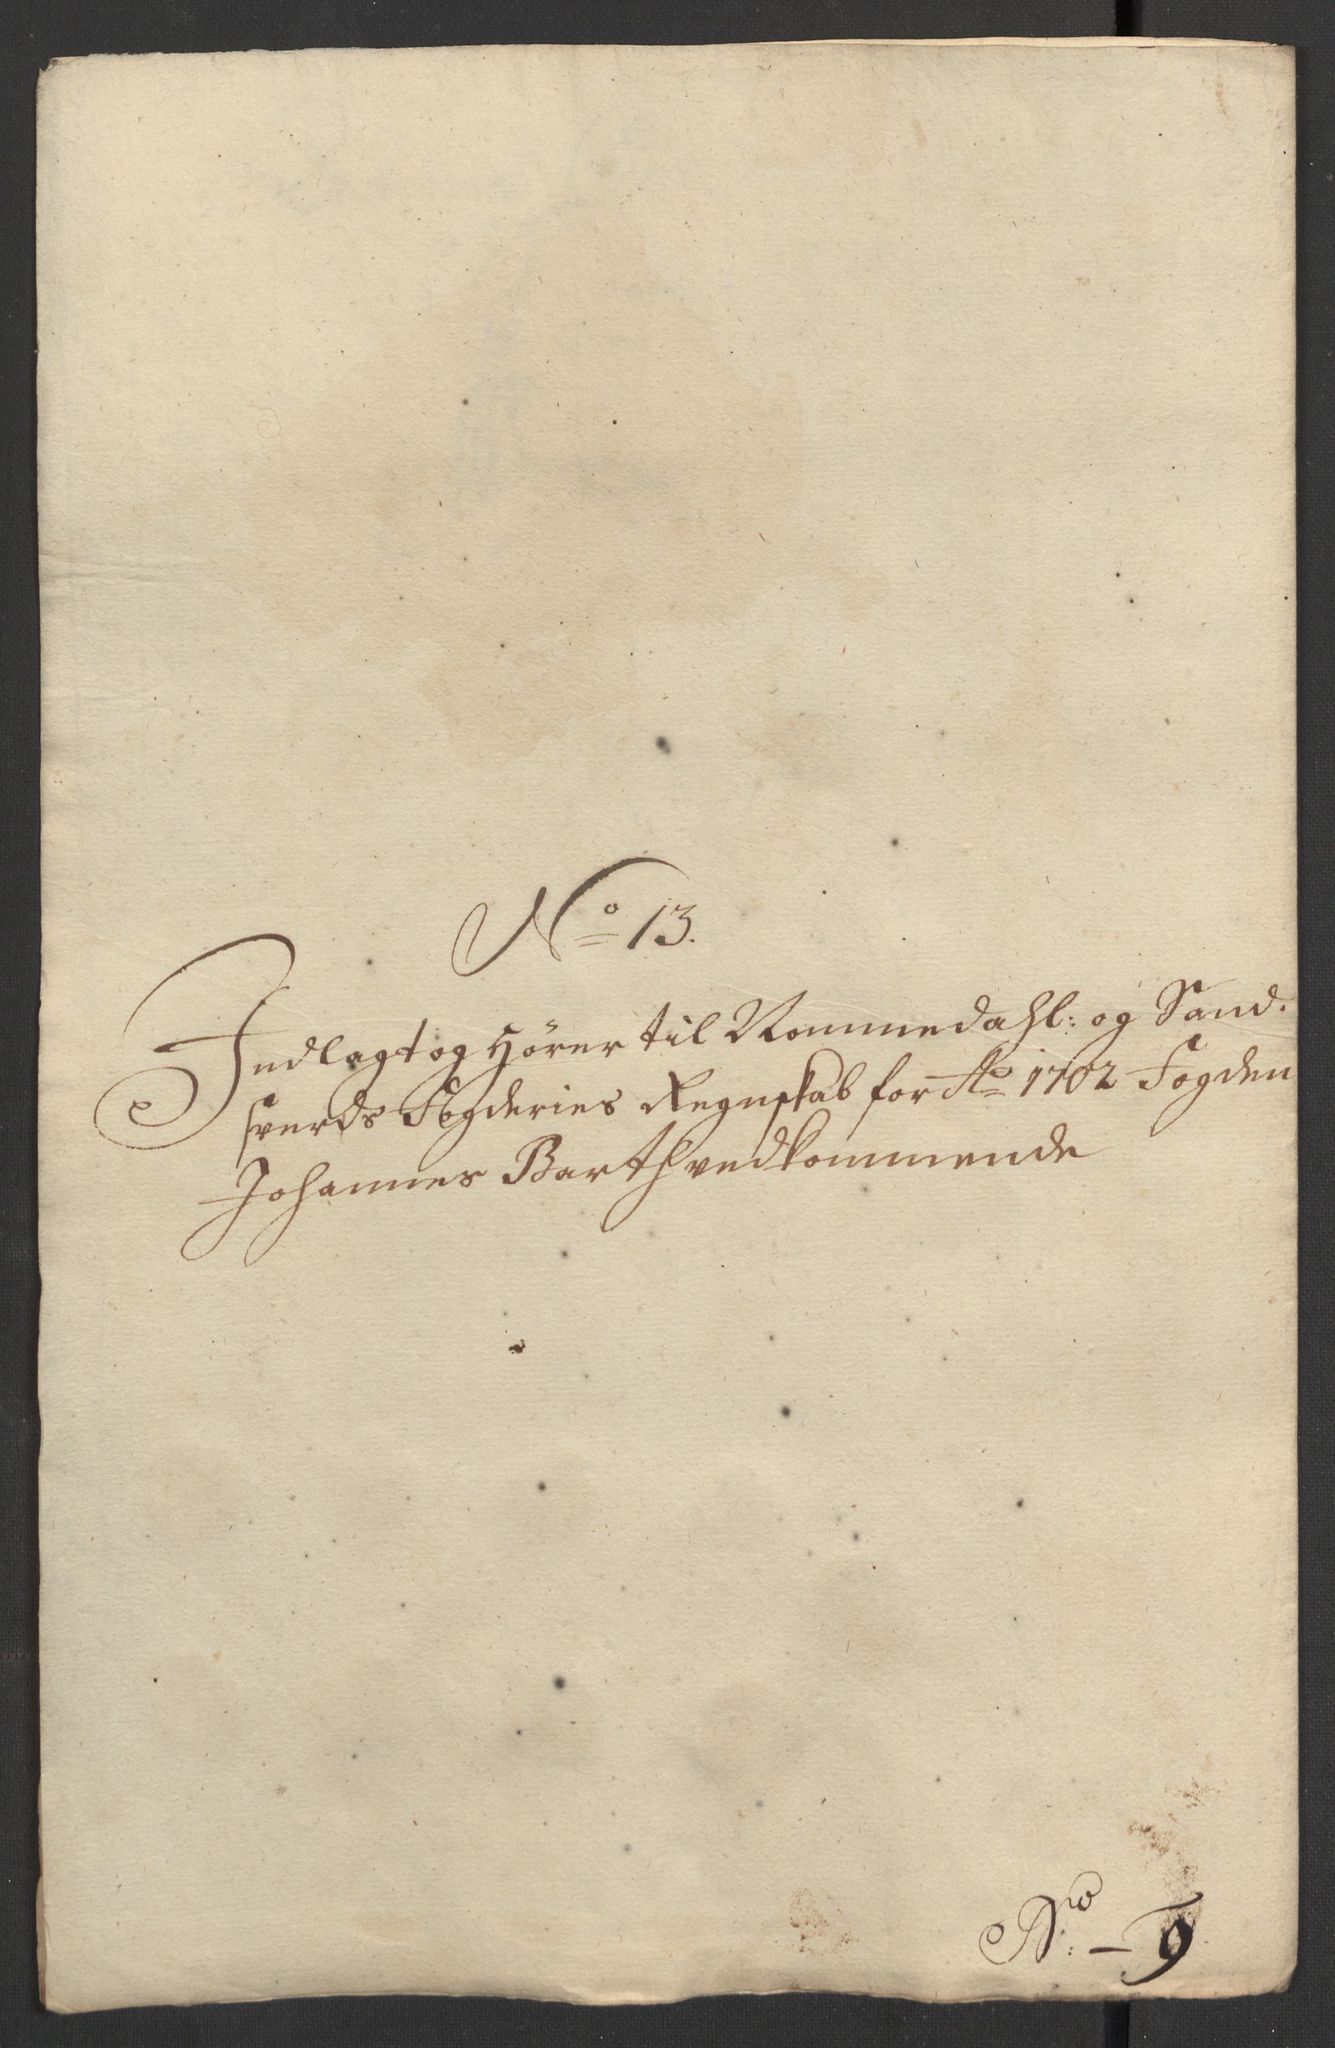 No 13.
Indlagt og hörer til Nommedahl: og Sand-
sverds Fogderies Regnskab for Ao 1702 Fogden
Johannes Barth vedkommende
Nro: - 9